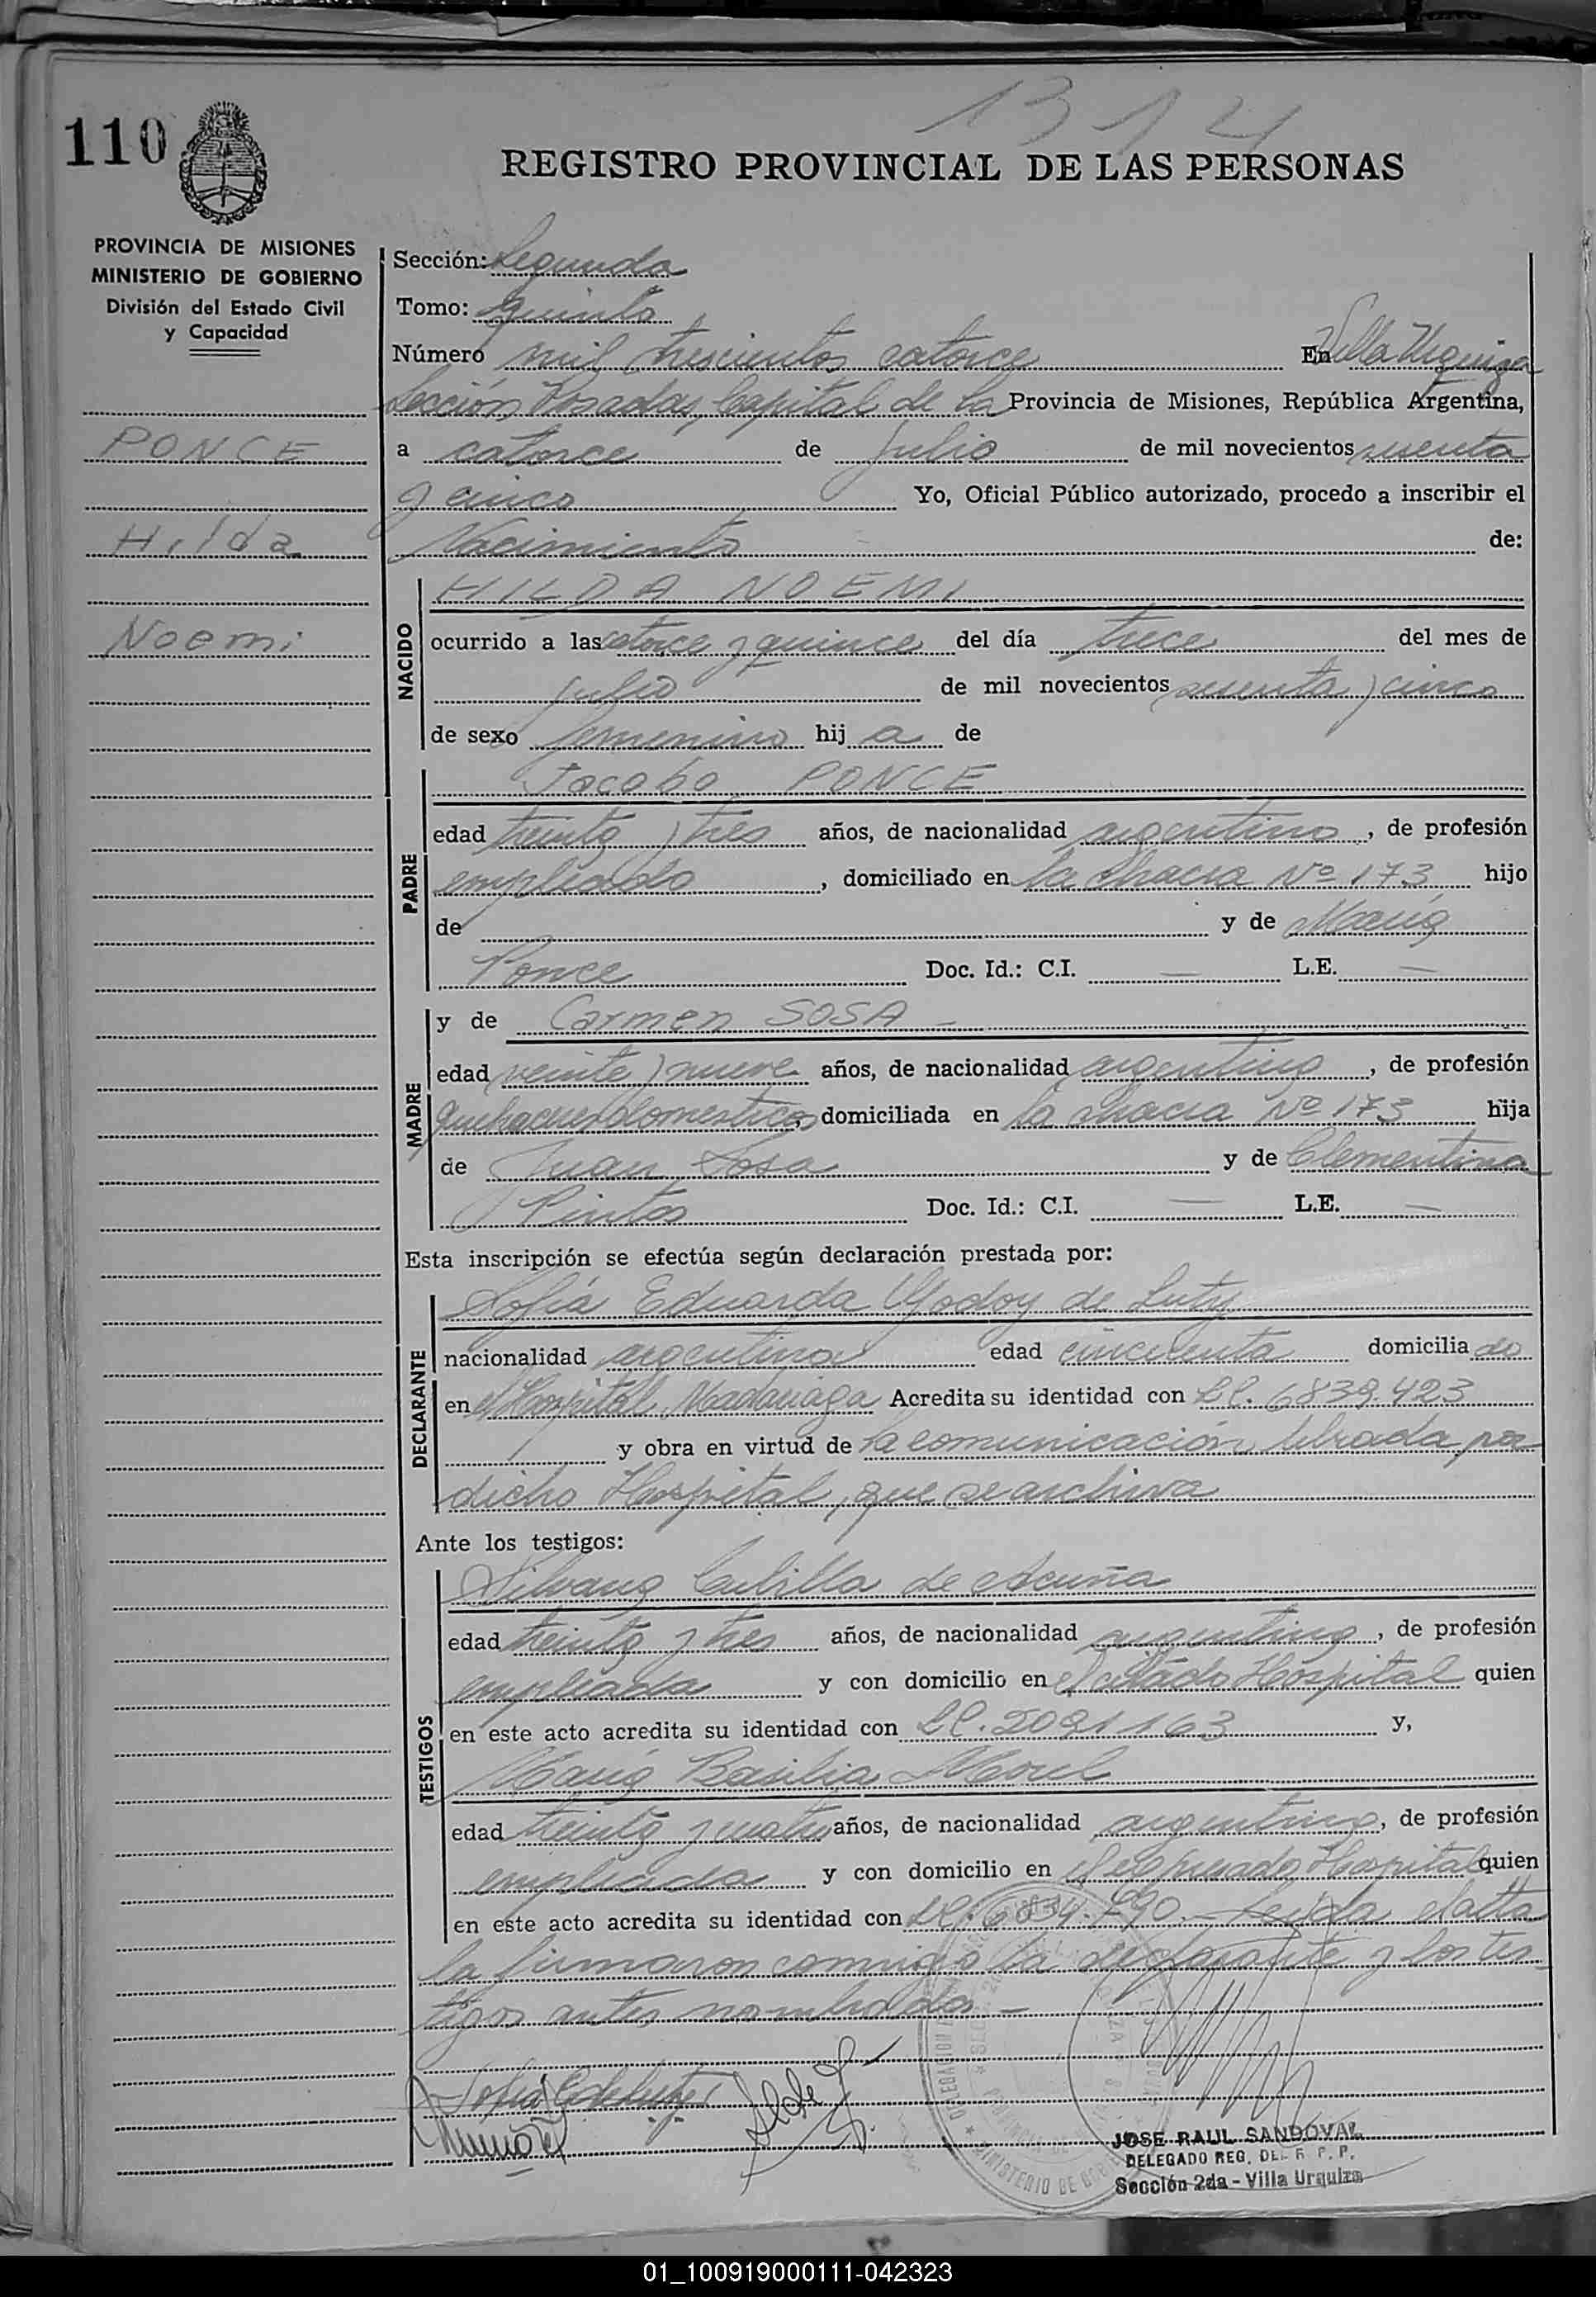 1314
110
REGISTRO PROVINCIAL DE LAS PERSONAS
PROVINCIA DE MISIONES
MINISTERIO DE GOBIERNO
División del Estado Civil
y Capacidad
PONCE
Hilda
Noemi
Sección: Segunda
Tomo: Quinto
Número mil trescientos catorce En Villa Urquiza
Sección Posadas, Capital de la Provincia de Misiones, República Argentina,
a catorce de Julio de mil novecientos sesenta
y cinco Yo, Oficial Público autorizado, procedo a inscribir el
Nacimiento de:
NACIDO
HILDA NOEMI
ocurrido a las catorce y quince del día trece del mes de
Julio de mil novecientos sesenta y cinco
de sexo femenino hij a de
PADRE
Jacobo PONCE
edad treinta y tres años, de nacionalidad argentino, de profesión
empleado, domiciliado en la chacra Nº 173 hijo
de y de María
Ponce Doc. Id.: C.I. — L.E. —
MADRE
y de Carmen SOSA —
edad veinte y nueve años, de nacionalidad argentina, de profesión
quehaceres domesticos, domiciliada en la chacra Nº 173 hija
de Juan Sosa y de Clementina
Pintos Doc. Id.: C.I. — L.E. —
Esta inscripción se efectúa según declaración prestada por:
DECLARANTE
Sofía Eduarda Godoy de Luty
nacionalidad argentina edad cincuenta domicilia do
en el Hospital Madariaga Acredita su identidad con LC. 6839.423
y obra en virtud de la comunicación librada por
dicho Hospital, que se archiva
Ante los testigos:
TESTIGOS
Silvana Cubilla de Acuña
edad treinta y tres años, de nacionalidad argentina, de profesión
empleada y con domicilio en el citado Hospital quien
en este acto acredita su identidad con LC. 2091163 y,
María Basilia Morel
edad treinta y cuatro años, de nacionalidad argentina, de profesión
empleada y con domicilio en el expresado Hospital quien
en este acto acredita su identidad con LC. 6834.790. — Leída el acta
la firmaron conmigo la declarante y los tes
tigos antes nombrados —
JOSE RAUL SANDOVAL
DELEGADO REG. DEL R P. P.
Sección 2da - Villa Urquiza
01_100919000111-042323